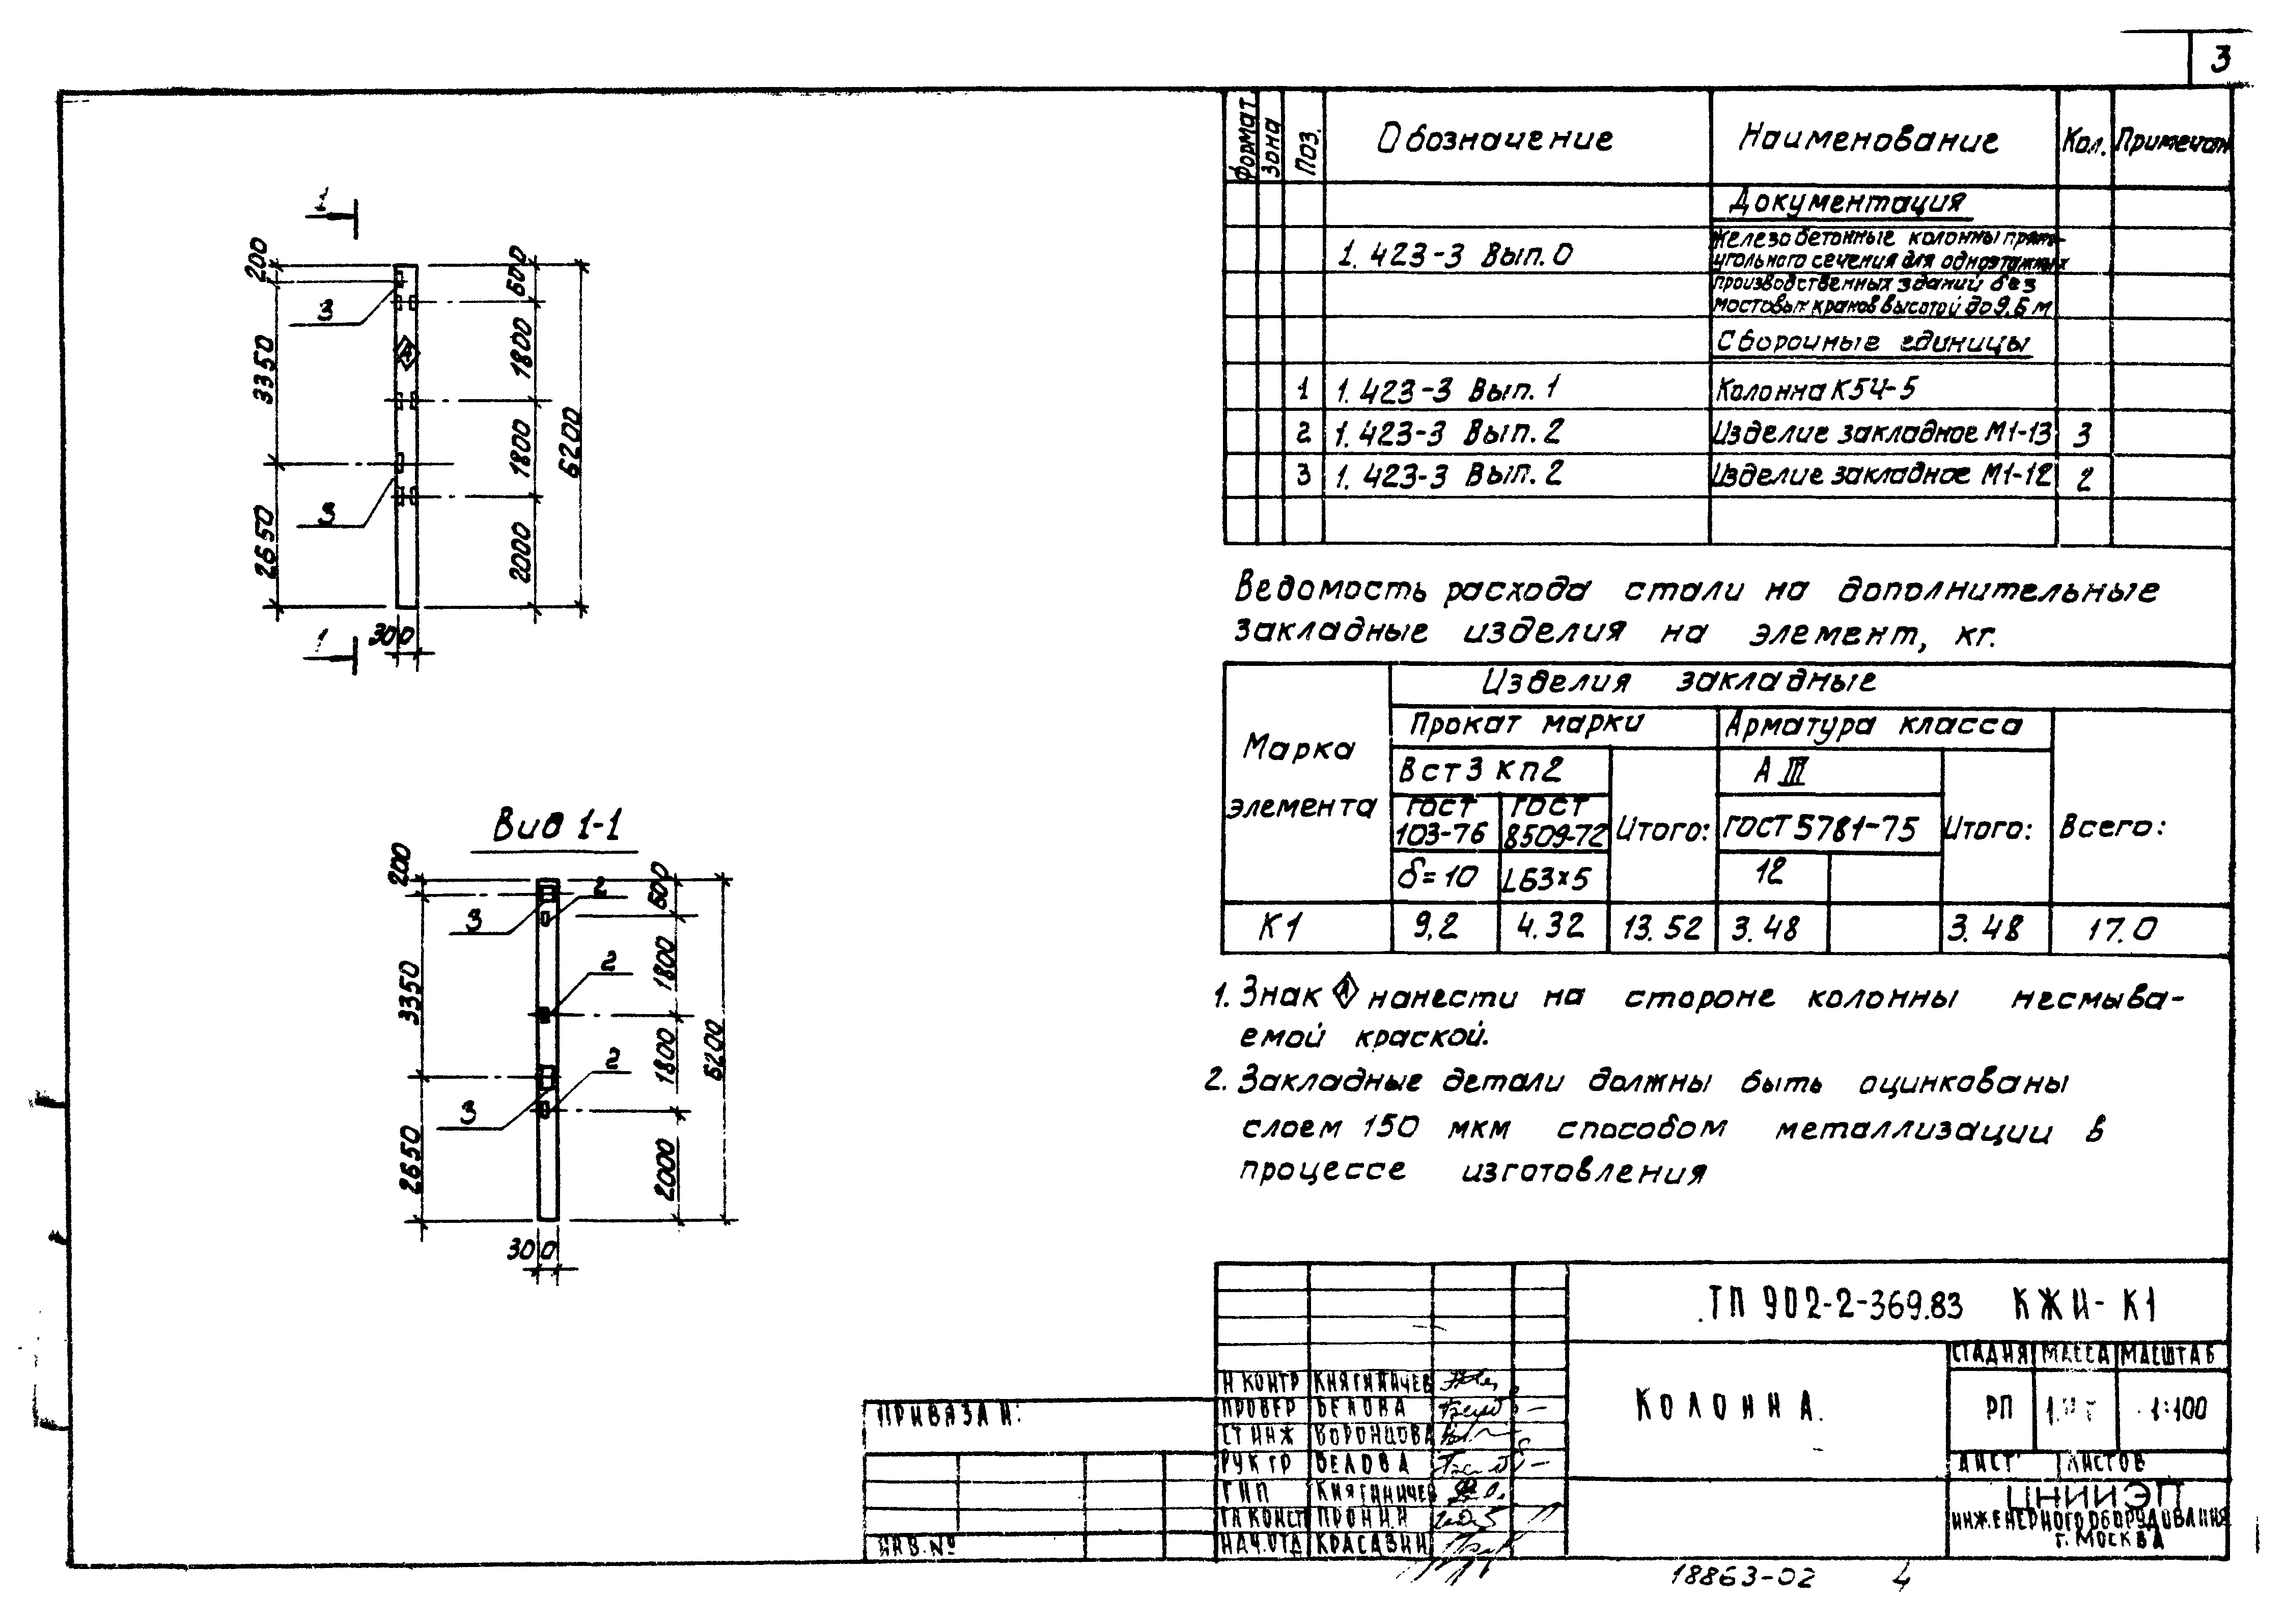 3
1
200
3350
2650
3
3
А
600
1800
1800
2000
6200
300
1
Вид 1-1
200
3350
2650
3
3
2
2
2
600
1800
1800
2000
6200
300
Формат Зона Поз. Обозначение Наименование Кол. Примечан
Документация
1.423-3 Вып.0 Железобетонные колонны прямо-
угольного сечения для одноэтажных
производственных зданий без
мостовых кранов высотой до 9.6 м
Сборочные единицы
1 1.423-3 Вып.1 Колонна К54-5
2 1.423-3 Вып.2 Изделие закладное М1-13 3
3 1.423-3 Вып.2 Изделие закладное М1-12 2
Ведомость расхода стали на дополнительные
закладные изделия на элемент, кг.
Марка
элемента
Изделия закладные
Прокат марки Арматура класса
Вст3кп2 А III
ГОСТ 103-76 ГОСТ 8509-72 Итого: ГОСТ 5781-75 Итого: Всего:
δ=10 L63×5 12
К1 9,2 4.32 13.52 3.48 3.48 17.0
1. Знак А нанести на стороне колонны несмыва-
емой краской.
2. Закладные детали должны быть оцинкованы
слоем 150 мкм способом металлизации в
процессе изготовления
ТП 902-2-369.83 КЖИ-К1
КОЛОННА.
СТАДИЯ МАССА МАСШТАБ
РП 1:100
ЛИСТ ЛИСТОВ
ЦНИИЭП
ИНЖЕНЕРНОГО ОБОРУДОВАНИЯ
Г. МОСКВА
Н КОНТР КНЯГИНИЧЕВ
ПРОВЕР БЕЛОВА
СТ ИНЖ ВОРОНЦОВА
РУК ГР БЕЛОВА
ГИП КНЯГИНИЧЕВ
ГЛ КОНСТ ПРОНИН
НАЧ.ОТД КРАСАВИН
ПРИВЯЗАН:
ИНВ.№
18863-02 4